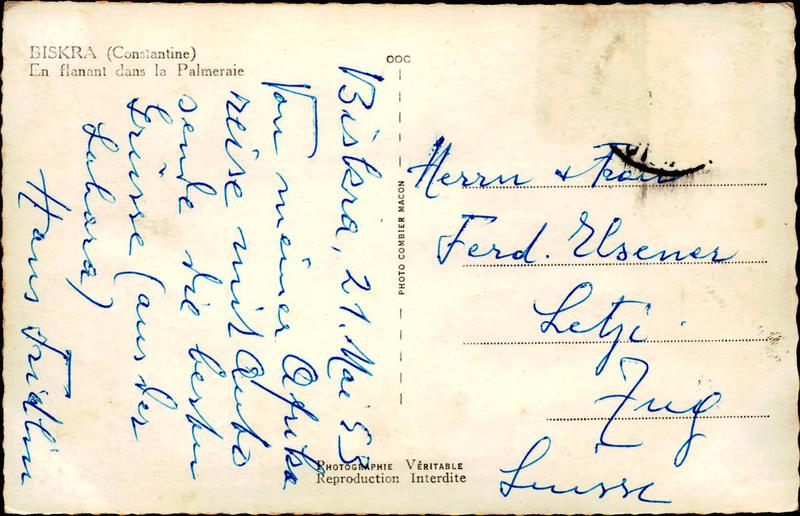 BISKRA (Constantine)
En flanant dans la Palmeraie
OOC
PHOTO COMBIER MACON
Biskra, 21. Mai 53
Von meiner Afrika
reise mit Auto
sende die besten
Grüsse (aus der
Sahara)
Hans Fridlin
Herrn & Frau
Ferd. Elsener
Letzi
Zug
Suisse
PHOTOGRAPHIE VÉRITABLE
Reproduction Interdite